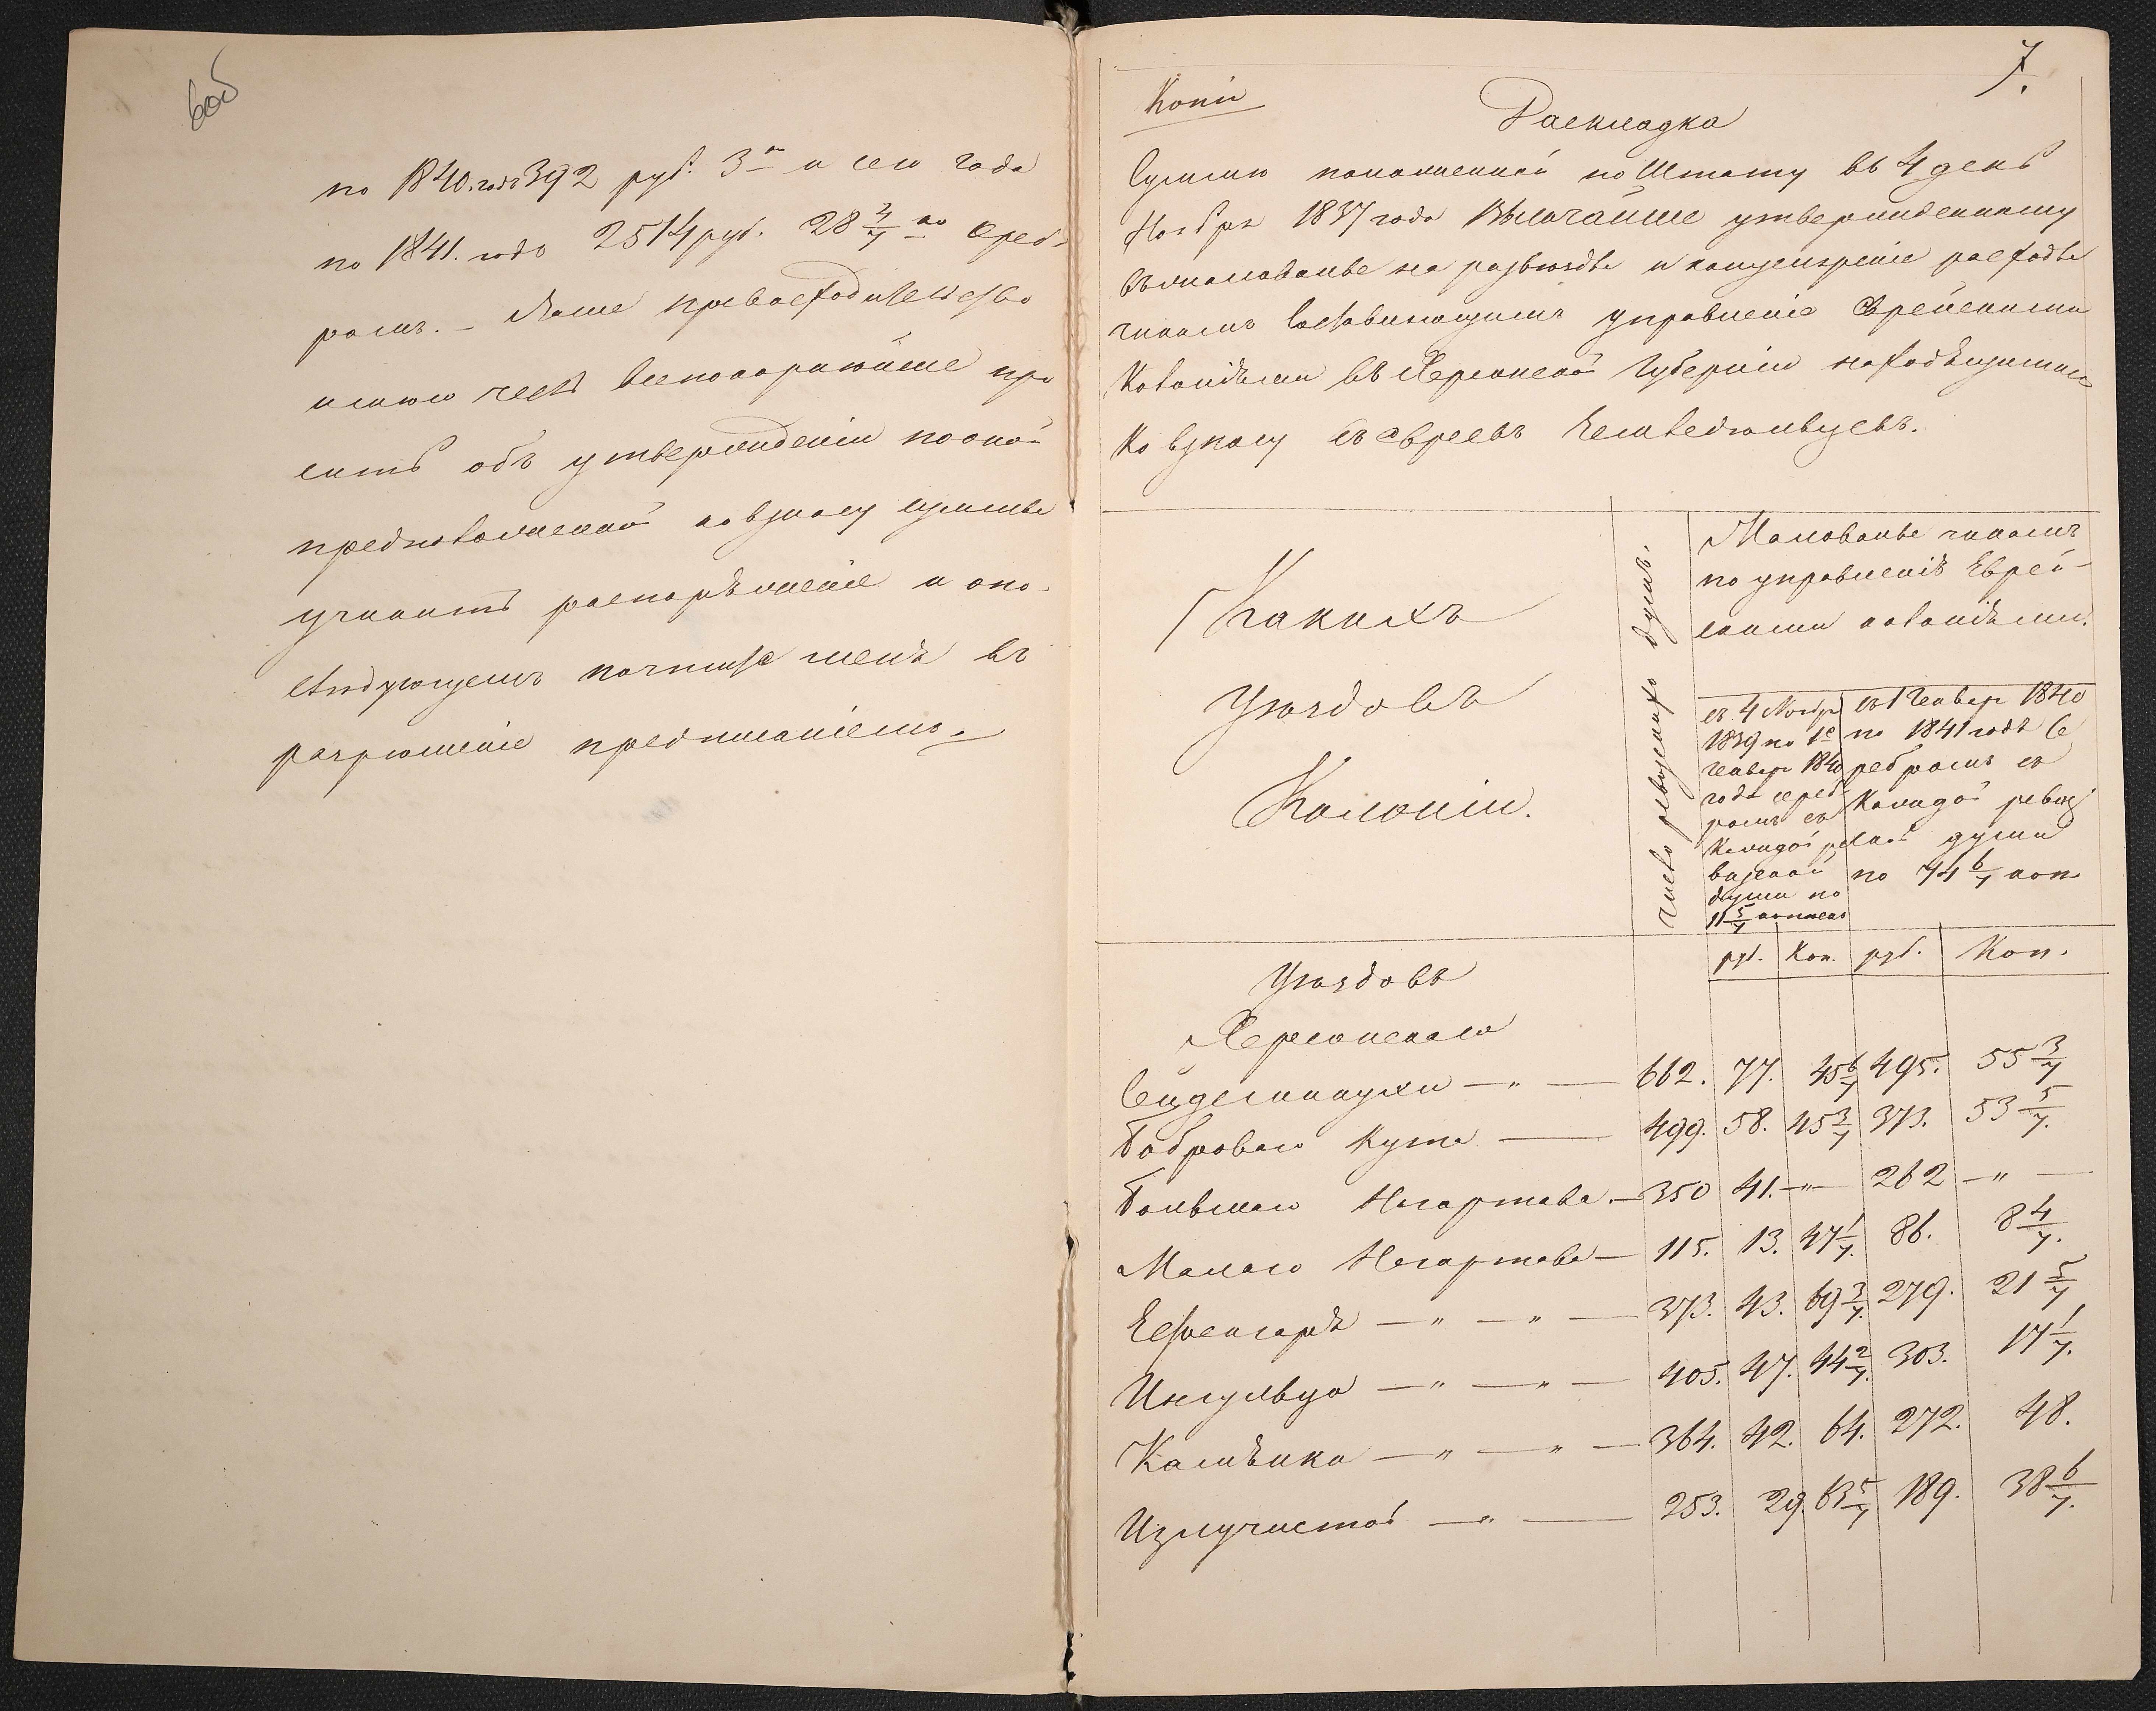 6об
по 1840. годъ 392 руб. 3 к и сего года
по 1841. годъ 2514 руб. 28 4/7 ко сереб-
ромъ. – Ваше превосходительство
имею честь всепокорнейше про
сить объ утверждении по оной
предположенной ко взносу суммы
учинить распоряжение и о по-
следующемъ почтить меня въ
разрешение предписаніемъ.
7.
Копія
Раскладка
Суммы положенной по Штату въ 4 день
Ноября 1837 года Высочайше утвержденному
въ жалованье на разъезды и канцелярскіе расходы
чинамъ составляющимъ управленіе Еврейскими
Колоніями въ Херсонской Губерніи находящимися
Ко взносу съ евреевъ Земледельцевъ.
Какихъ
Уездовъ
Колоніи.
число ревизскихъ душъ.
Жалованье чинамъ
по управленію Еврей-
скими колоніями.
съ 4 Ноября
1839 по 1е
Генваря 1840
года сереб-
ромъ съ
Каждой ре
визской
души по
11 5/7 копеек
съ 1 Генваря 1840
по 1841 годъ Се
ребромъ съ
Каждой ревиз
ской души
по 74 6/7 коп
руб. Коп. руб. Коп.
Уездовъ
Херсонскаго
Сейдеминухи — " — 662. 77. 45 6/7 495. 55 3/7
Боброваго Кута — 499. 58. 45 3/7 373. 53 5/7.
Большаго Нагартава. — 350 41. — " — 262 — " —
Малаго Нагартава — 115. 13. 47 1/7. 86. 8 4/7.
Ефенгарь — " — " — 373. 43. 69 3/7. 279. 21 5/7
Ингульца — " — " — 405. 47. 44 2/7. 303. 17 1/7.
Камянки — " — " — 364. 42. 64. 272. 48.
Излучистой — " — 253. 29. 63 5/7 189. 38 6/7.